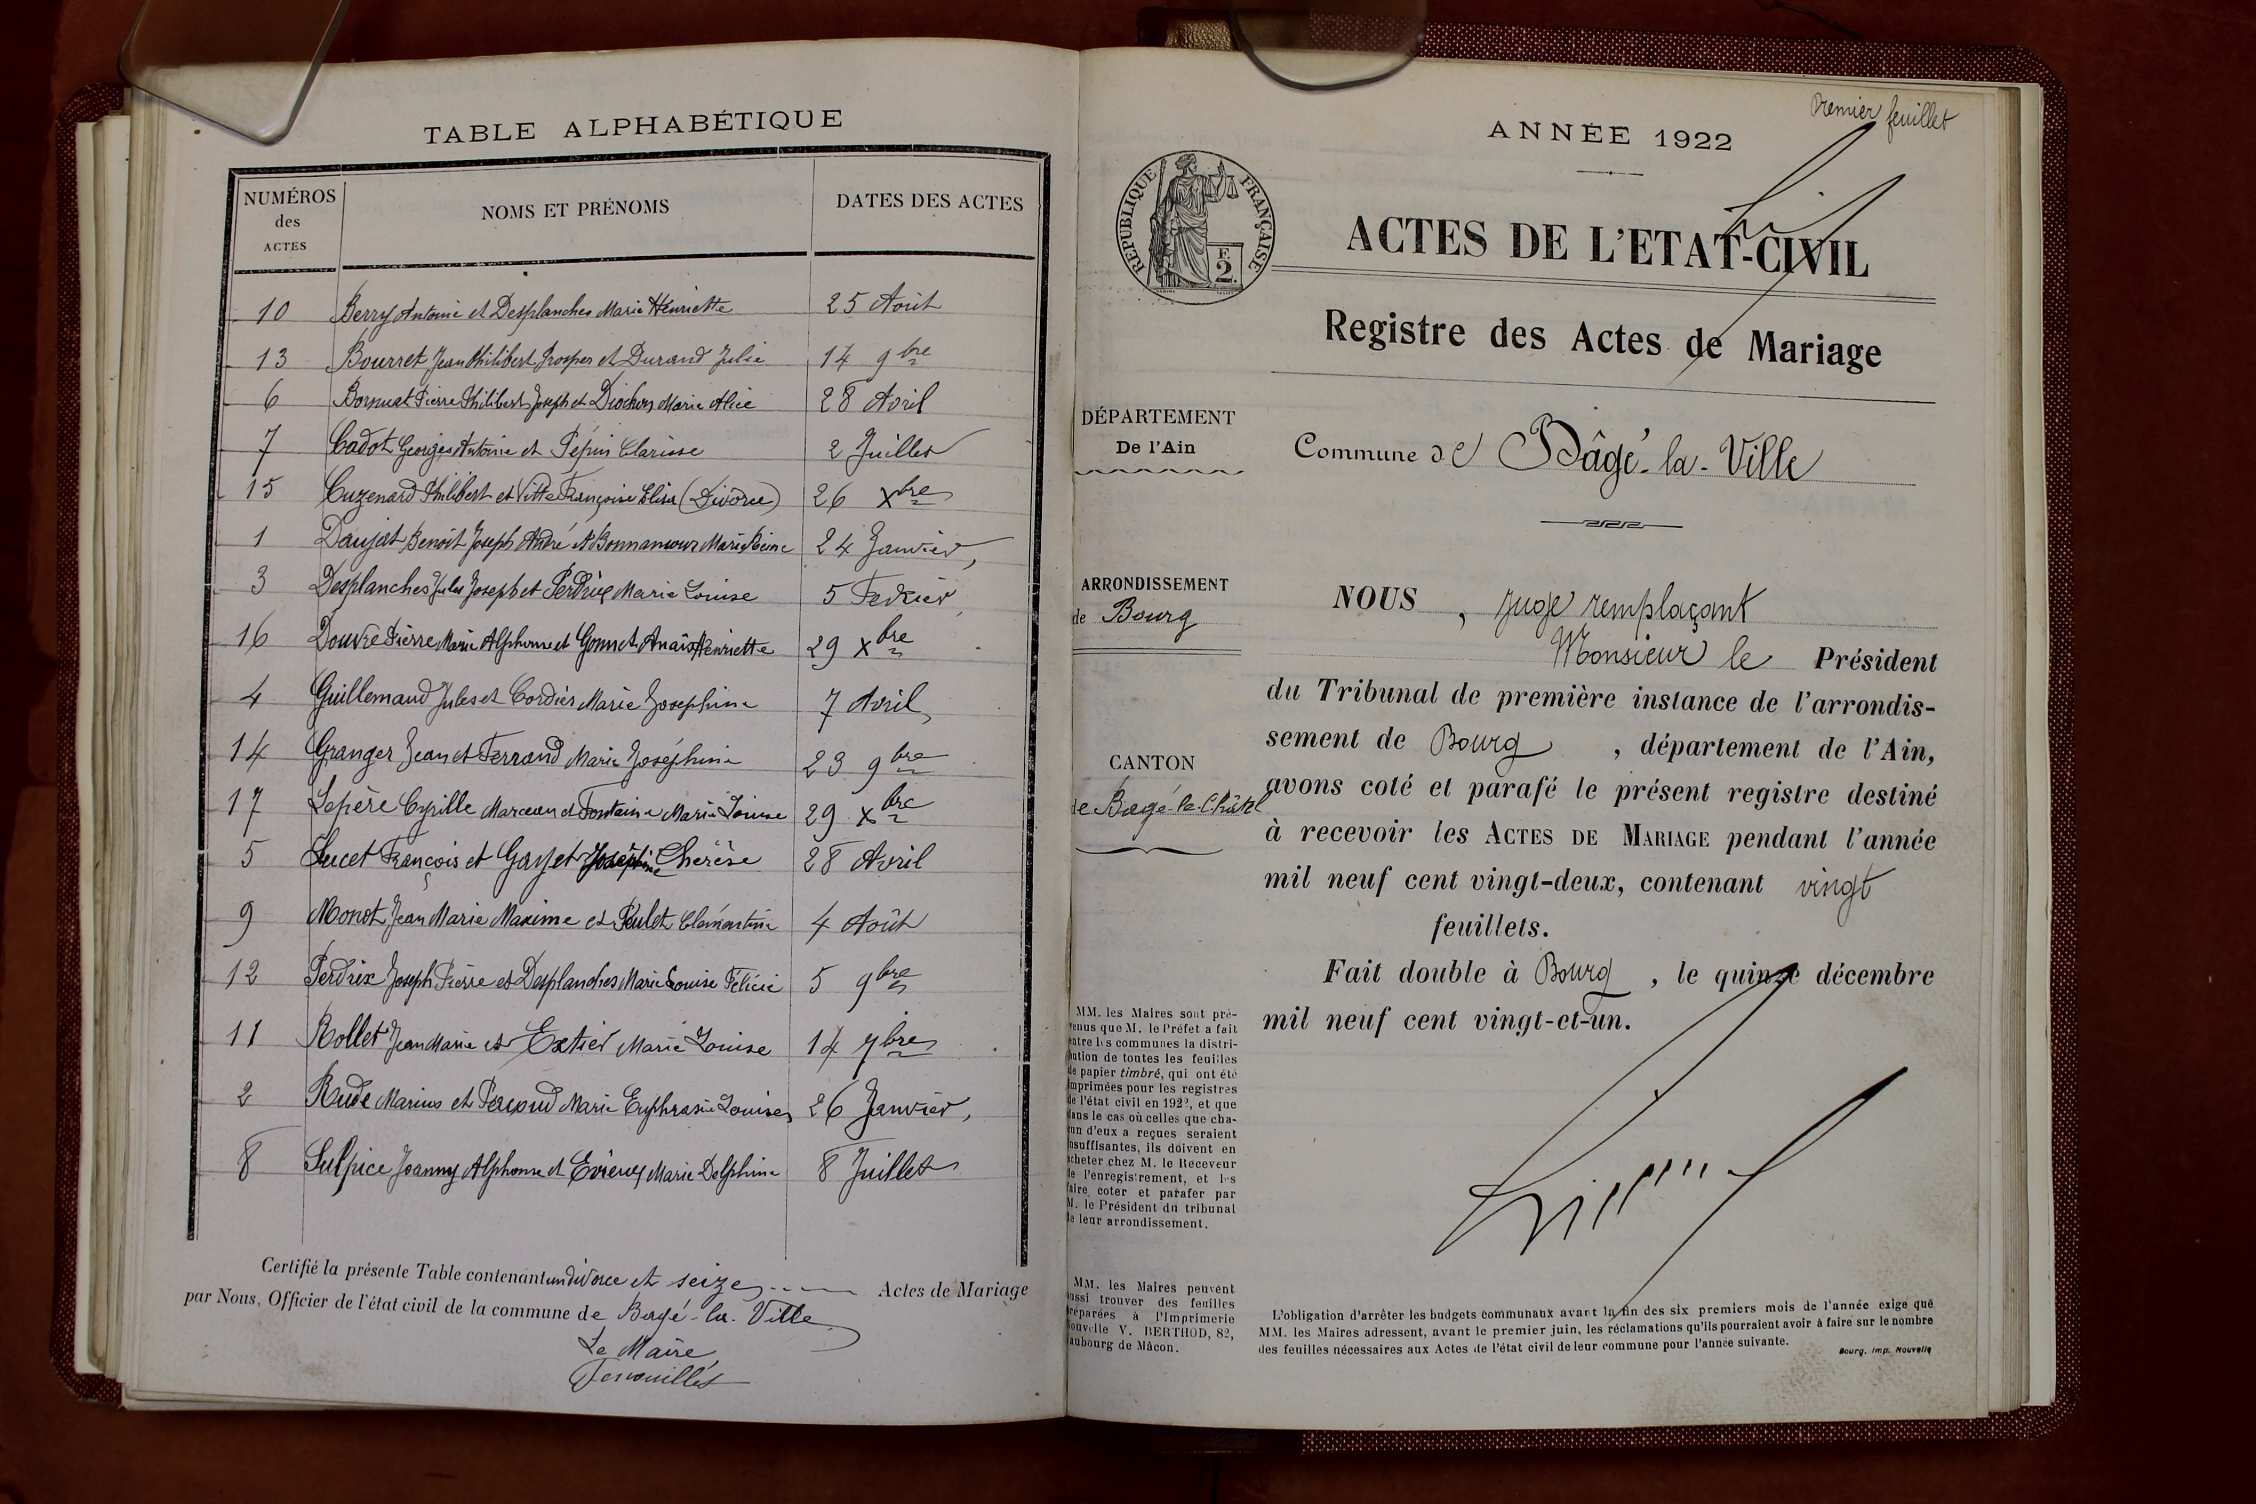 TABLE ALPHABÉTIQUE
NUMÉROS des ACTES NOMS ET PRÉNOMS DATES DES ACTES
10 Berry Antoine et Desplanches Marie Henriette 25 Août
13 Bourret Jean Philibert Prosper et Durand Julie 14 9bre
6 Pierre Philibert Joseph et Marie Alice 28 Avril
7 Cadot Georges Antoine et Pépin Clarisse 2 Juillet
15 Cuzenard Philibert et Vitte Françoise Elisa (Divorce) 26 Xbre
1 Daujat Benoît Joseph André et Bonnamour Marie Reine 24 Janvier,
3 Desplanches Jules Joseph et Perdrix Marie Louise 5 Fevrier
16 Douvre Pierre Marie Alphonse et Gonnet Anaïs Henriette 29 Xbre
4 Guillemaud Jules et Cordier Marie Josephine 7 Avril
14 Granger Jean et Ferrand Marie Joséphine 23 9bre
17 Lepère Cyrille Marceau et Fontaine Marie Louise 29 Xbre
5 Lucet François et Gayet Thérèse 28 Avril
9 Monot Jean Marie Maxime et Poulet Clémentine 4 Août
12 Perdrix Joseph Pierre et Desplanches Marie Louise Félicie 5 9bre
11 Rollet Jean Marie et Extier Marie Louise 14 7bre
2 Rude Marius et Marie Euphrasie Louise 26 Janvier,
8 Sulpice Joanny Alphonse et Evieux Marie Delphine 8 Juillet
Certifié la présente Table contenant un divorce et seize Actes de Mariage
par Nous, Officier de l'état civil de la commune de Bagé-la-Ville
Le Maire
premier feuillet
ANNÉE 1922
RÉPUBLIQUE FRANÇAISE
E.
2.
ACTES DE L'ETAT-CIVIL
Registre des Actes de Mariage
DÉPARTEMENT
De l'Ain
Commune de Bâgé-la-Ville
ARRONDISSEMENT
de Bourg
CANTON
de Bagé-le-Châtel
NOUS, juge remplaçant
Monsieur le Président
du Tribunal de première instance de l'arrondis-
sement de Bourg, département de l'Ain,
avons coté et parafé le présent registre destiné
à recevoir les ACTES DE MARIAGE pendant l'année
mil neuf cent vingt-deux, contenant vingt
feuillets.
Fait double à Bourg, le quinze décembre
mil neuf cent vingt-et-un.
MM. les Maires sont pré-
venus que M. le Préfet a fait
entre les communes la distri-
bution de toutes les feuilles
de papier timbré, qui ont été
imprimées pour les registres
de l'état civil en 1922, et que
dans le cas où celles que cha-
cun d'eux a reçues seraient
insuffisantes, ils doivent en
acheter chez M. le Receveur
de l'enregistrement, et les
faire coter et parafer par
M. le Président du tribunal
de leur arrondissement.
MM. les Maires peuvent
aussi trouver des feuilles
préparées à l'Imprimerie
Nouvelle V. BERTHOD, 82,
faubourg de Mâcon.
L'obligation d'arrêter les budgets communaux avant la fin des six premiers mois de l'année exige que
MM. les Maires adressent, avant le premier juin, les réclamations qu'ils pourraient avoir à faire sur le nombre
des feuilles nécessaires aux Actes de l'état civil de leur commune pour l'année suivante.
Bourg. Imp. Nouvelle